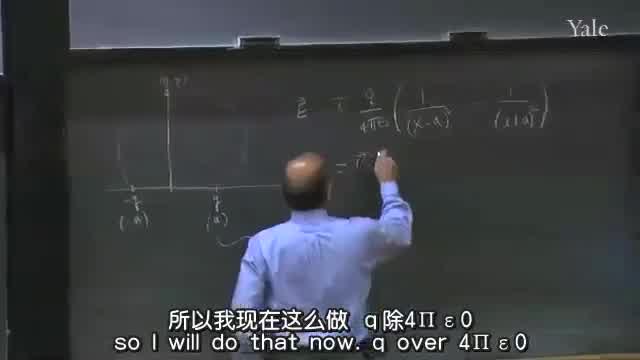 Yale
E = i q/4πε0 ( 1/(x-a)² - 1/(x+a)² )
=
-q q
(-a) (a)
所以我现在这么做 q除4Π ε0
so I will do that now. q over 4Π ε0